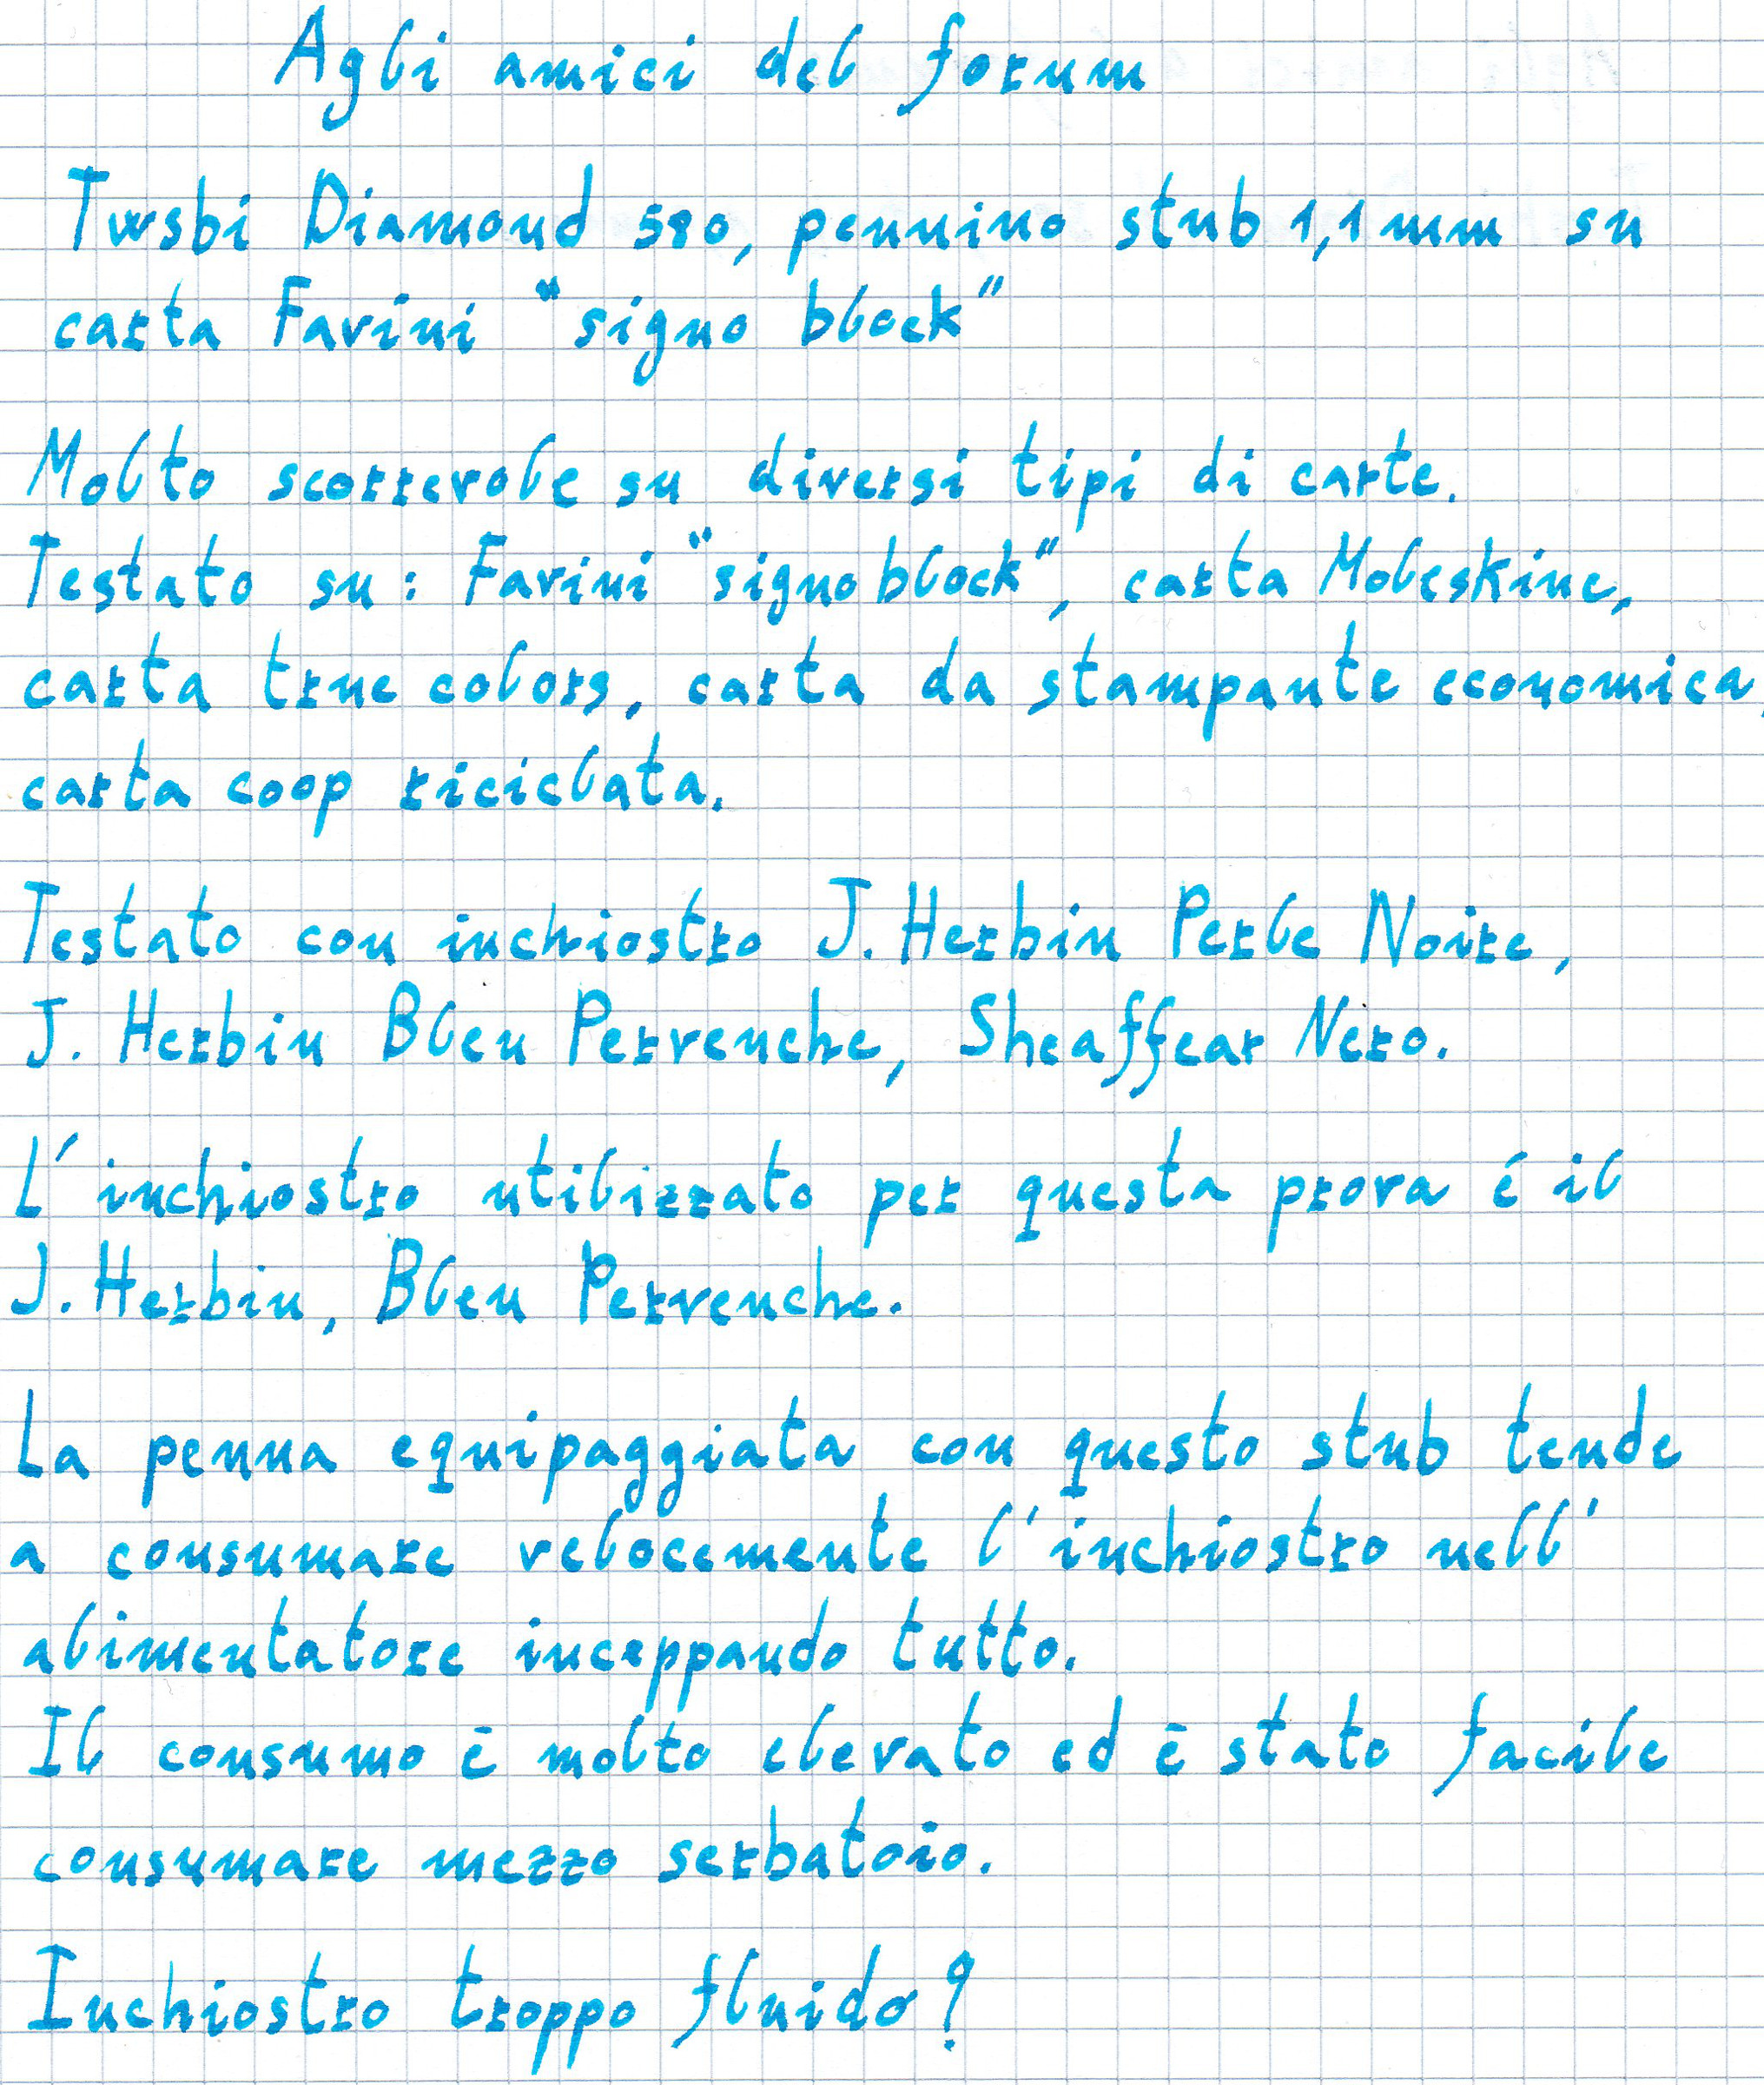 Agli amici del forum
Twsbi Diamond 580, pennino stub 1,1 mm su
carta Favini "signo block"
Molto scorrevole su diversi tipi di carte.
Testato su: Favini "signo block", carta Moleskine,
carta true colors, carta da stampante economica,
carta coop riciclata.
Testato con inchiostro J. Herbin Perle Noire,
J. Herbin Bleu Pervenche, Sheaffear Nero.
L'inchiostro utilizzato per questa prova é il
J. Herbin, Bleu Pervenche.
La penna equipaggiata con questo stub tende
a consumare velocemente l'inchiostro nell'
alimentatore inceppando tutto.
Il consumo ē molto elevato ed ē stato facile
consumare mezzo serbatoio.
Inchiostro troppo fluido?